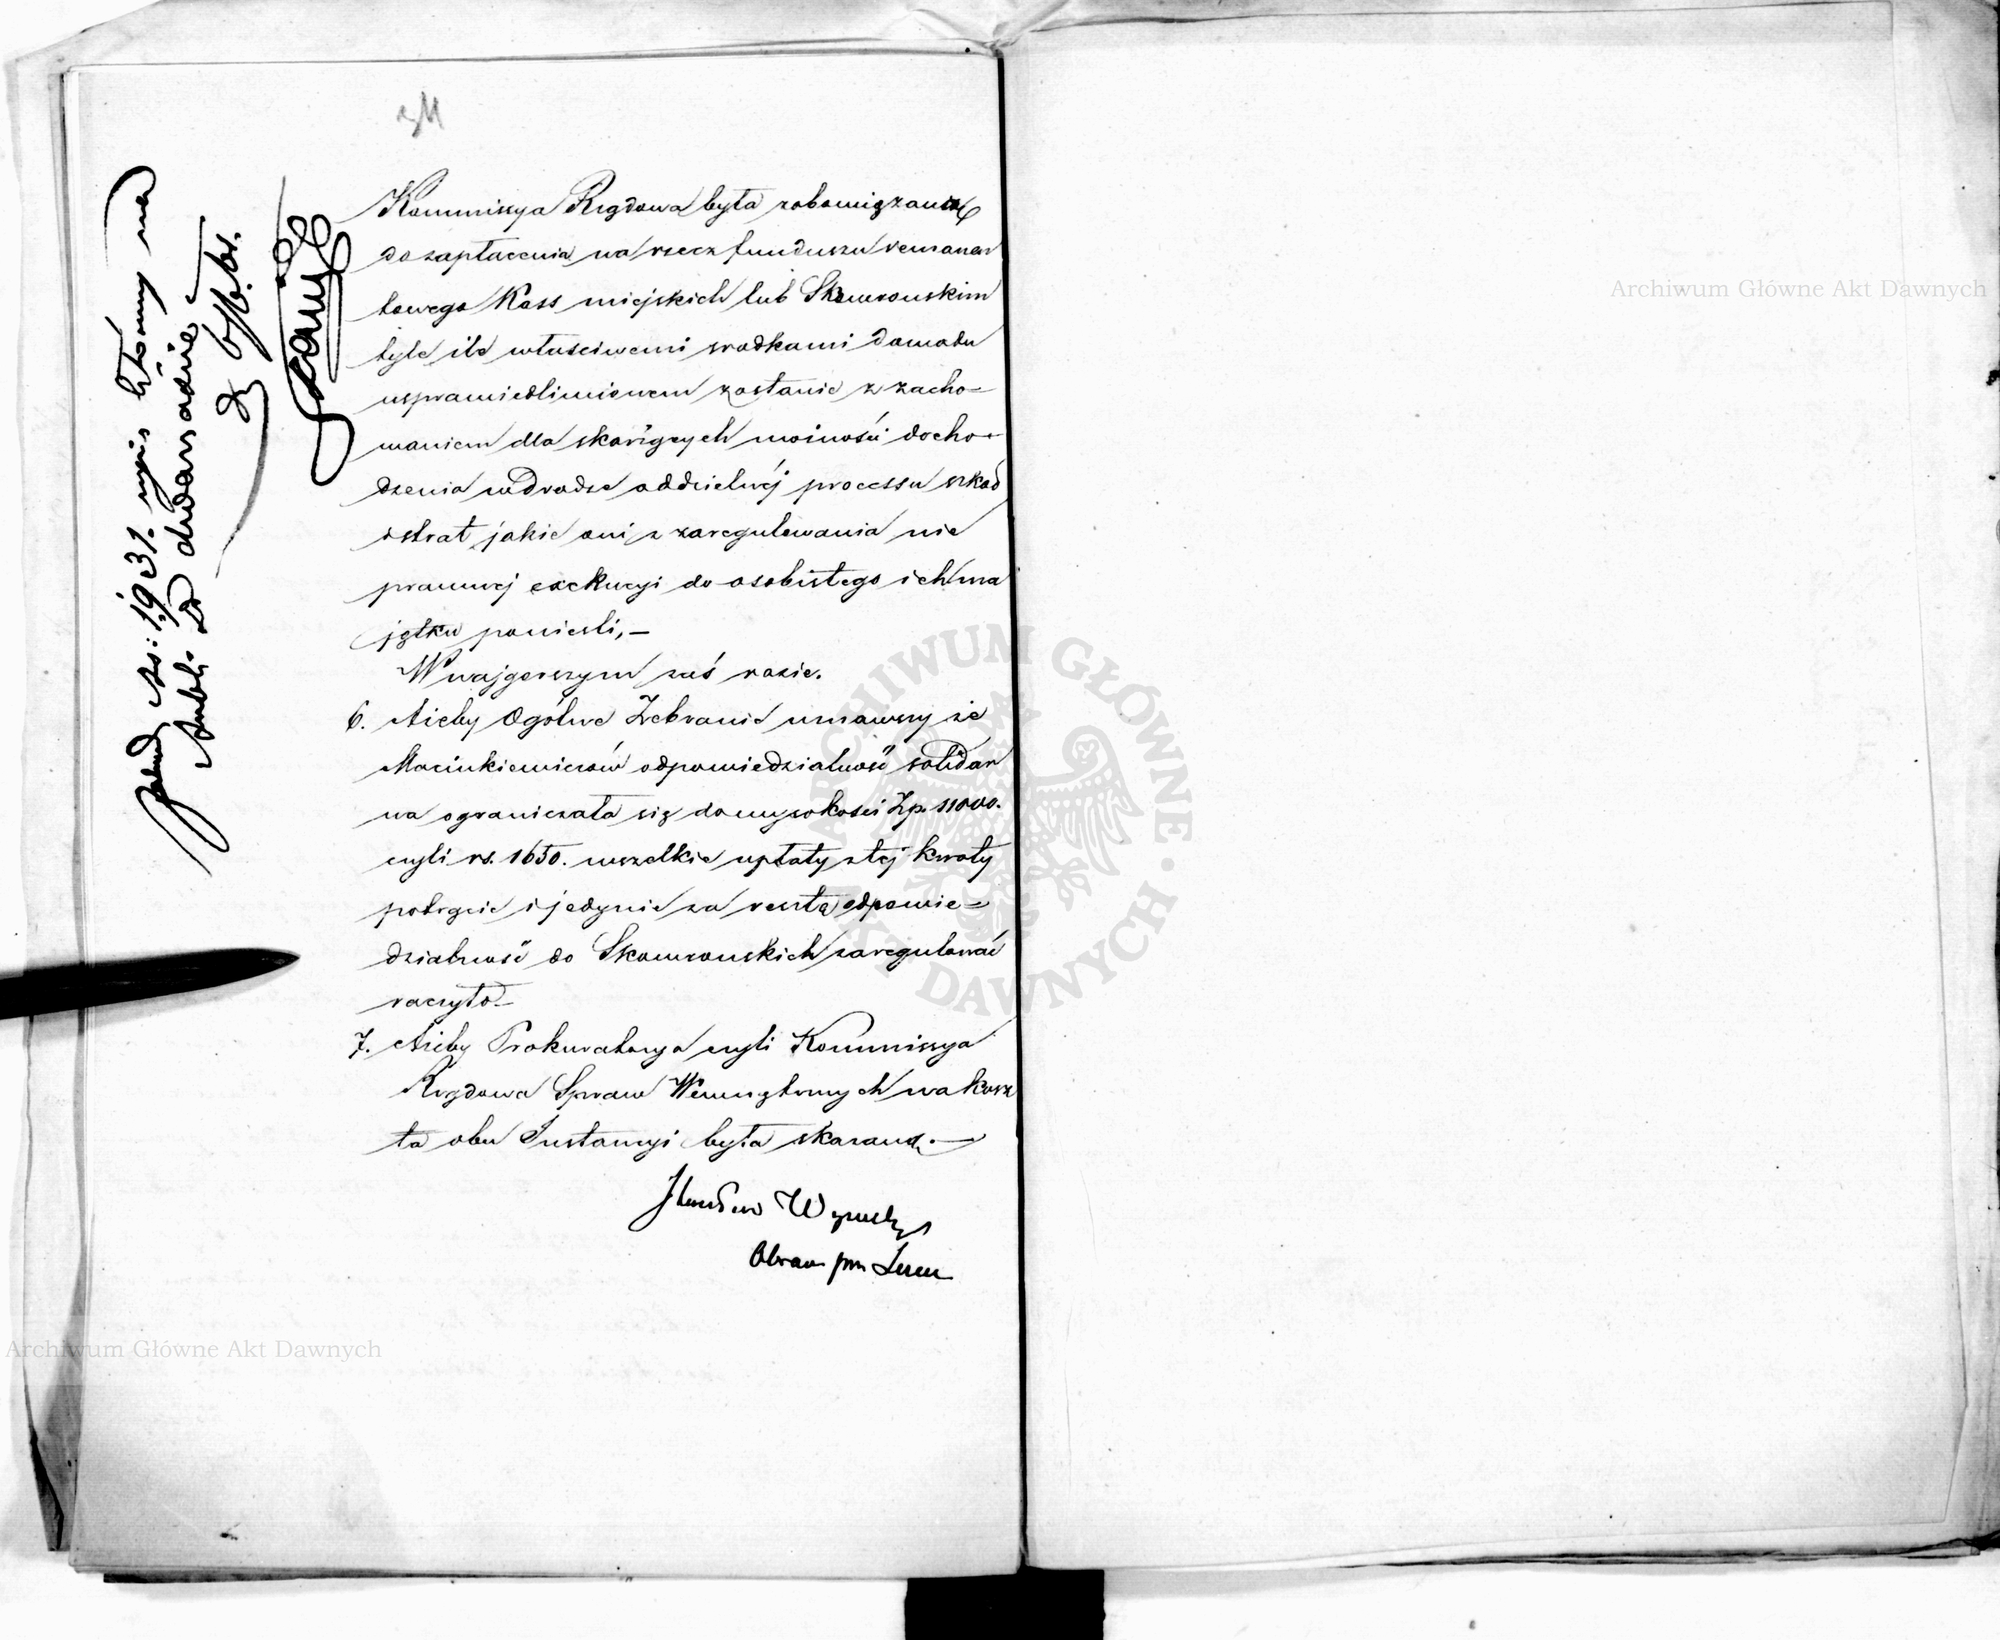 Kommissya Rządowa była zobowiązaną
do zapłacenia na rzecz funduszu remanen
towego Kass miejskich lub Skowrońskim
tyle ile właściwemi środkami dowodu
usprawiedliwionem zostanie z zacho=
waniem dla skarżących możności docho=
dzenia w drodze oddzielnéj processu szkód
i strat jakie oni z zaregulowania nie
prawnej exekucyi do osobistego ich ma
jątku ponieśli,—
W najgorszym zaś razie.
6. Ażeby Ogólne Zebranie uznawszy że
Marcinkiewiczów odpowiedzialność solidar
na ograniczała się do wysokości Zp. 11000.
czyli rs. 1650. wszelkie wpłaty z tej kwoty
potrącić i jedynie za resztę odpowie=
dzialność do Skowrońskich zaregulować
raczyło.—
7. Ażeby Prokuratorya czyli Kommissya
Rządowa Spraw Wewnętrznych na kosz
ta obu Instancyi była skazaną.—
Obrońca przy
1931.
na
ARCHIWUM GŁÓWNE AKT DAWNYCH
Archiwum Główne Akt Dawnych
Archiwum Główne Akt Dawnych